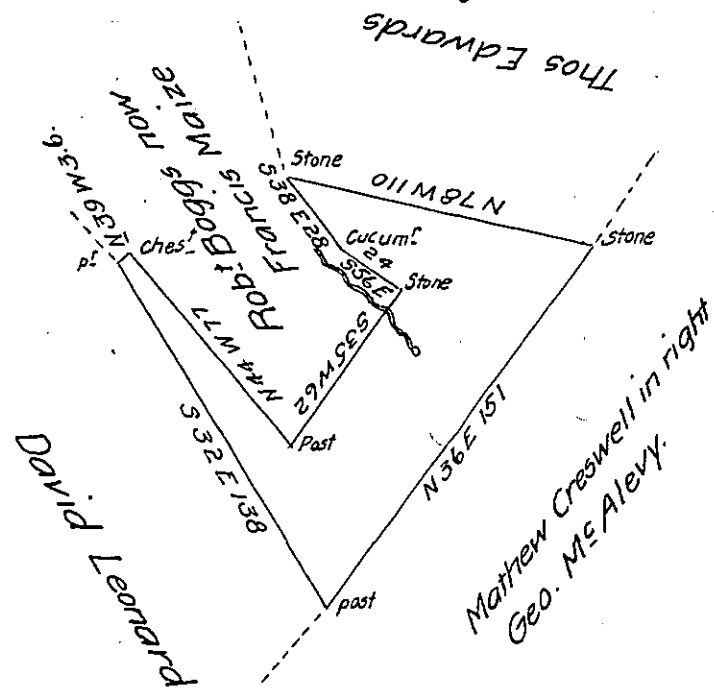 Thos Edwards
Robt Boggs now
Francis Maize
N39W3.6.
pt
Chest
N44W77
S38E28
Stone
N78W110
Stone
Cucumr
24
S56E
Stone
S35W62
Post
S32E138
N36E151
post
David Leonard
Mathew Creswell in right
Geo. Mc Alevy.